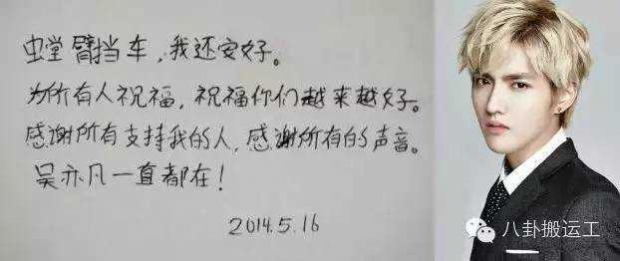 虫堂臂挡车,我还安好。
为所有人祝福,祝福你们越来越好。
感谢所有支持我的人,感谢所有的声音。
吴亦凡一直都在!
2014.5.16
八卦搬运工